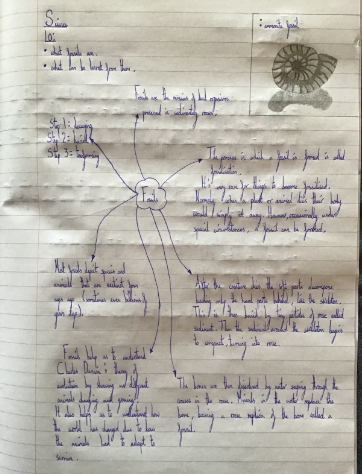 Science
LO:
• what fossils are.
• what can be learnt from them.
: ammonite fossil
Fossils are the remains of dead organisms
preserved in sedimentary rocks.
Step 1 =
Step 2 = burial
Step 3 =
Fossils
The process in which a fossil is formed is called
fossilisation.
It's very rare for things to become fossilised.
Normally when a plant or animal dies their body
would simply rot away. However, occasionally under
special circumstances, a fossil can be formed.
Most fossils depict species and
animals that are extinct from
ages ago (sometimes even billions of
years ago).
After the creature dies the soft parts decompose
leaving only the hard parts behind, like the skeleton.
This is then buried by tiny particles of rock called
sediment. Then the sediment around the skeleton begins
to compact, turning into rock.
Fossils help us to understand
Charles Darwin's theory of
evolution by showing us different
animals changing and growing.
It also helps us to understand how
the world has changed due to how
the animals had to adapt to
survive.
The bones are then dissolved by water seeping through the
cracks in the rock. Minerals in the water replace the
bone, leaving a rock replica of the bone called a
fossil.